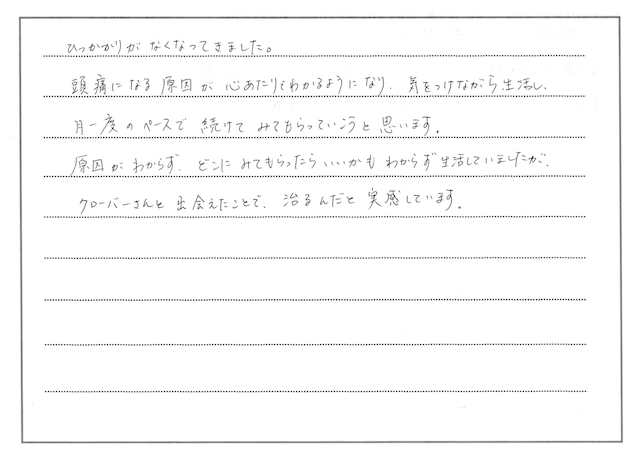 ひっかかりがなくなってきました。
頭痛になる原因が心あたりでわかるようになり、気をつけながら生活し、
月一度のペースで続けてみてもらっていこうと思います。
原因がわからず、どこにみてもらったらいいかもわからず生活していましたが、
クローバーさんと出会えたことで、治るんだと実感しています。